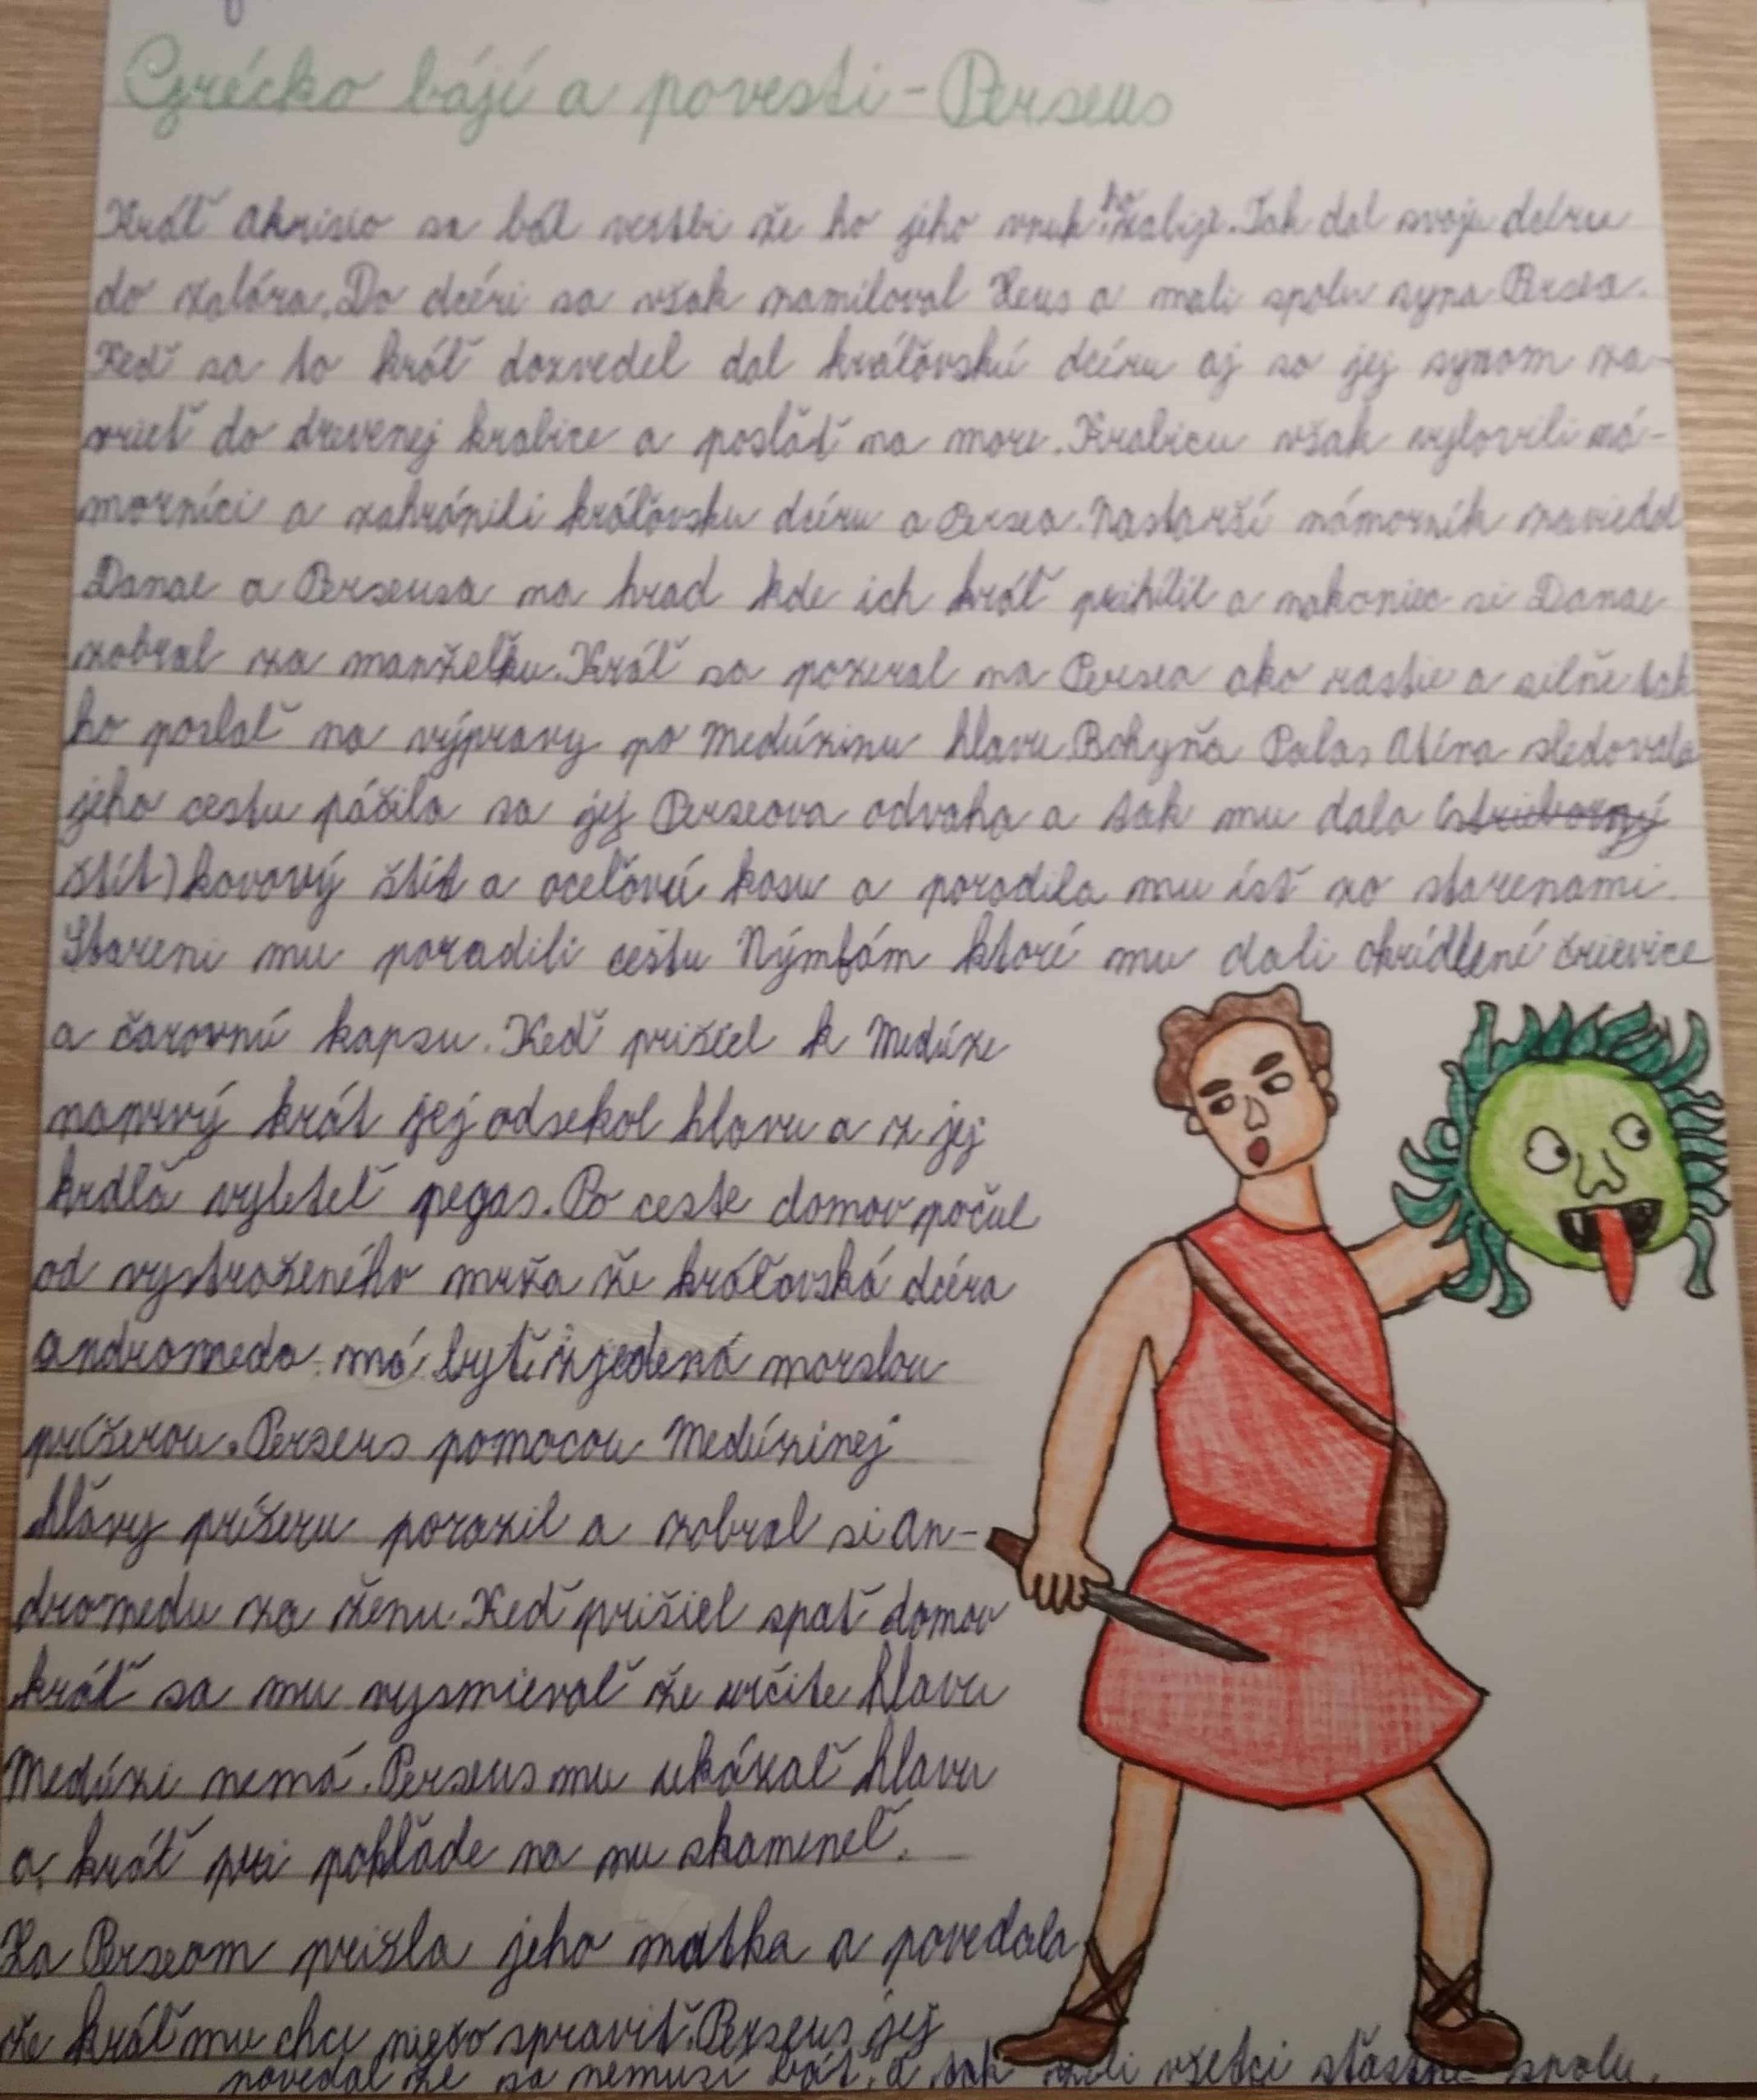 Grécko bájí a povesti - Perseus
Kráľ Akrisio sa bál vestbi že ho jeho vnuk ho zabije. Tak dal svoju dcéru
do žalára. Do dcéri sa však zamiloval Zeus a mali spolu syna Persea.
Keď sa to kráľ dozvedel dal kráľovskú dcéru aj so jej synom za-
vrieť do drevenej krabice a poslať na more. Krabicu však vylovili ná-
morníci a zahránili kráľovsku dcéru a Persea. Nastarší námorník zaviedol
Danae a Perseusa na hrad kde ich kráľ prihílil a nakoniec si Danae
zobral za manželku. Kráľ sa pozeral na Persea ako rastie a silňe tak
ho poslal na výpravy po Medúzinu hlavu. Bohyňa Palas Aténa sledovala
jeho cestu páčila sa jej Perseova odvaha a tak mu dala (strieborný
štít) kovový štít a oceľovú kosu a poradila mu ísť zo starenami.
Stareni mu poradili cestu Nýmfám ktoré mu dali okrídlené črievice
a čarovnú kapsu. Keď prišiel k Medúze
naprvý krát jej odsekol hlavu a z jej
krdla vyleteľ pegas. Po ceste domov počul
od vystrašeného muža že kráľovská dcéra
Andromeda má byť zjedená morskou
príšerou. Perseus pomocou Medúzinej
hlavy príšeru porazil a zobral si An-
dromedu za ženu. Keď prišiel spať domov
kráľ sa mu vysmievaľ že určite hlavu
Medúzi nemá. Perseus mu ukázaľ hlavu
a kráľ pri pohľade na nu skameneľ.
Za Perseom prišla jeho matka a povedala
že kráľ mu chce niečo spraviť. Perseus jej
povedal že sa nemusí báť, a tak žili všetci šťastne spolu.